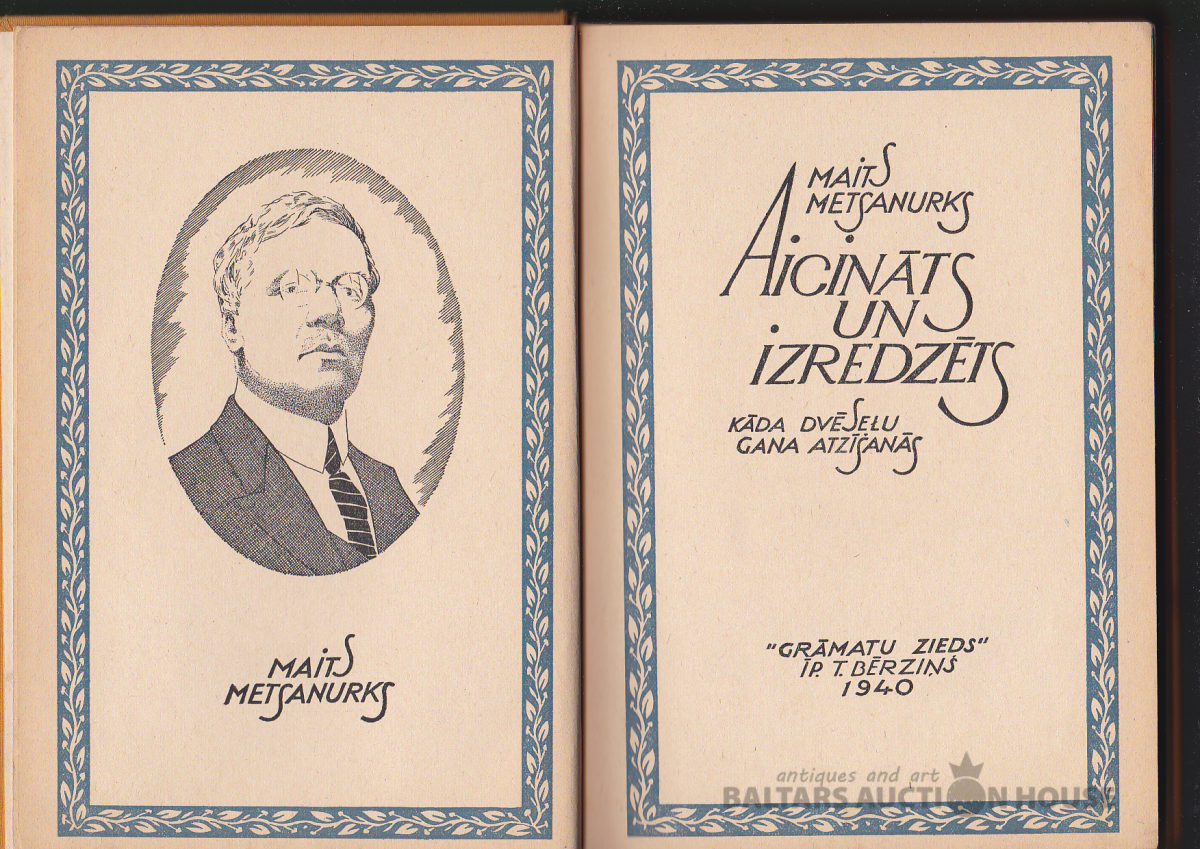 MAITS
METSANURKS
MAITS
METSANURKS
AICINĀTS
UN
IZREDZĒTS
KĀDA DVĒSEĻU
GANA ATZĪŠANĀS
"GRĀMATU ZIEDS"
ĪP. T. BĒRZIŅŠ
1940
antiques and art
BALTARS AUCTION HOUSE